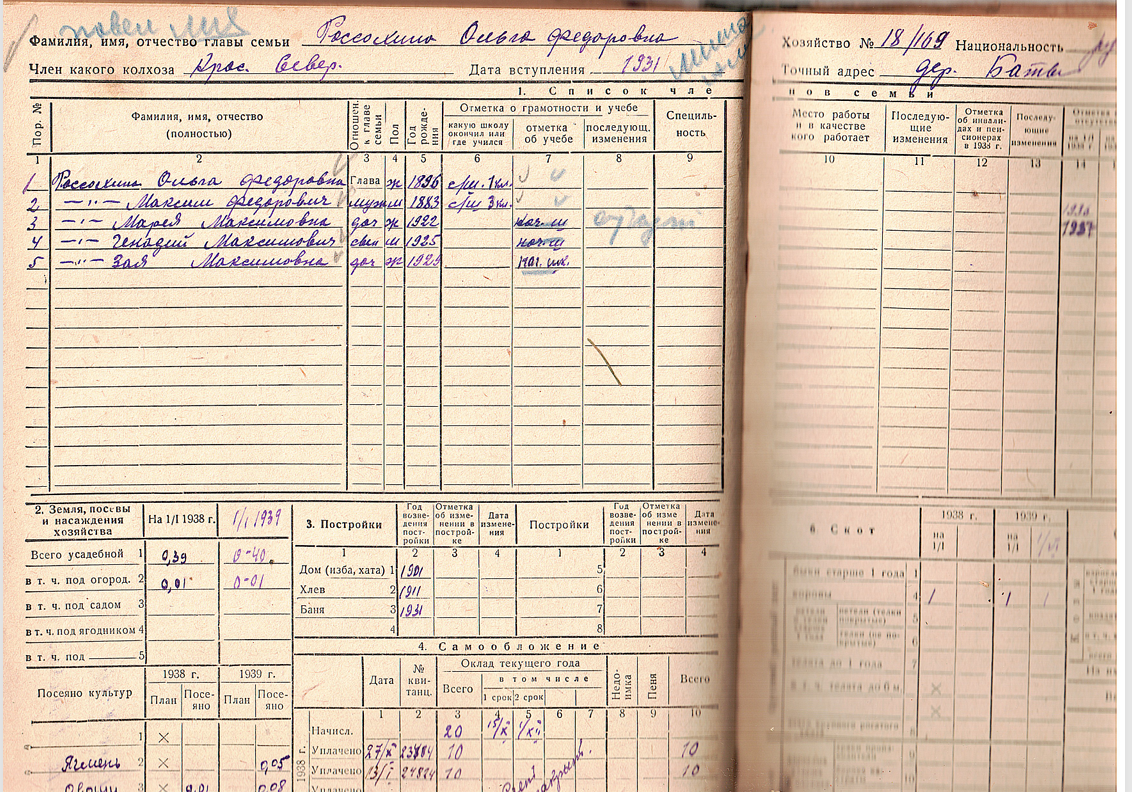 Фамилия, имя, отчество главы семьи Россохина Ольга Федоровна
Член какого колхоза Крас. Север. Дата вступления 1931
Хозяйство № 18/169 Национальность
Точный адрес дер.
1. Список чле
нов семьи
Пор. № Фамилия, имя, отчество (полностью) Отношен. к главе семьи Пол Год рождения Отметка о грамотности и учебе Специльность
какую школу окончил или где учился отметка об учебе последующ. изменения
Место работы и в качестве кого работает Последующие изменения Отметка об инвалидах и пенсионерах в 1938 г. Последующие изменения
1 2 3 4 5 6 7 8 9
10 11 12 13 14
1 Россохина Ольга Федоровна Глава ж 1896 с/ш. 1 кл.
2 —"— Максим Федорович муж м 1883 с/ш 3 кл.
3 —"— Марея Максимовна доч ж 1922 нач ш
4 —"— Генадий Максимович сын м 1925 нач ш
5 —"— Зоя Максимовна доч ж 1929 нач. шк.
1937
2. Земля, посевы и насаждения хозяйства На 1/I 1938 г. 1/I 1939
Всего усадебной 1 0,39 0-40
в т. ч. под огород. 2 0,01 0-01
в т. ч. под садом 3
в т. ч. под ягодником 4
в т. ч. под 5
Посеяно культур 1938 г. 1939 г.
План Посеяно План Посеяно
1 ×
Ячмень 2 × 0,05
Овощи 3 × 0,01 0,08
3. Постройки Год возведения постройки Отметка о изменении в постройке Дата изменения Постройки Год возведения постройки Отметка о изменении в постройке Дата изменения
1 2 3 4 1 2 3 4
Дом (изба, хата) 1 1901 5
Хлев 2 1911 6
Баня 3 1931 7
4 8
4. Самообложение
Дата № квитанц. Оклад текущего года Недоимка Пеня Всего
Всего в том числе
1 срок 2 срок
1 2 3 4 5 6 7 8 9 10
1938 г.
Начисл. 20 15/X 1/XII
Уплачено 27/X 23884 10 10
Уплачено 13/I 27824 10 10
Уплачено
6 Скот
1938 г. 1939 г.
на 1/I на 1/I
быки старше 1 года 1
коровы 4 1 1 1
5
6
телята до 1 года 7